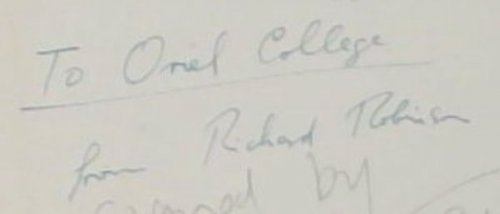 To Oriel College
from Richard Robinson
by